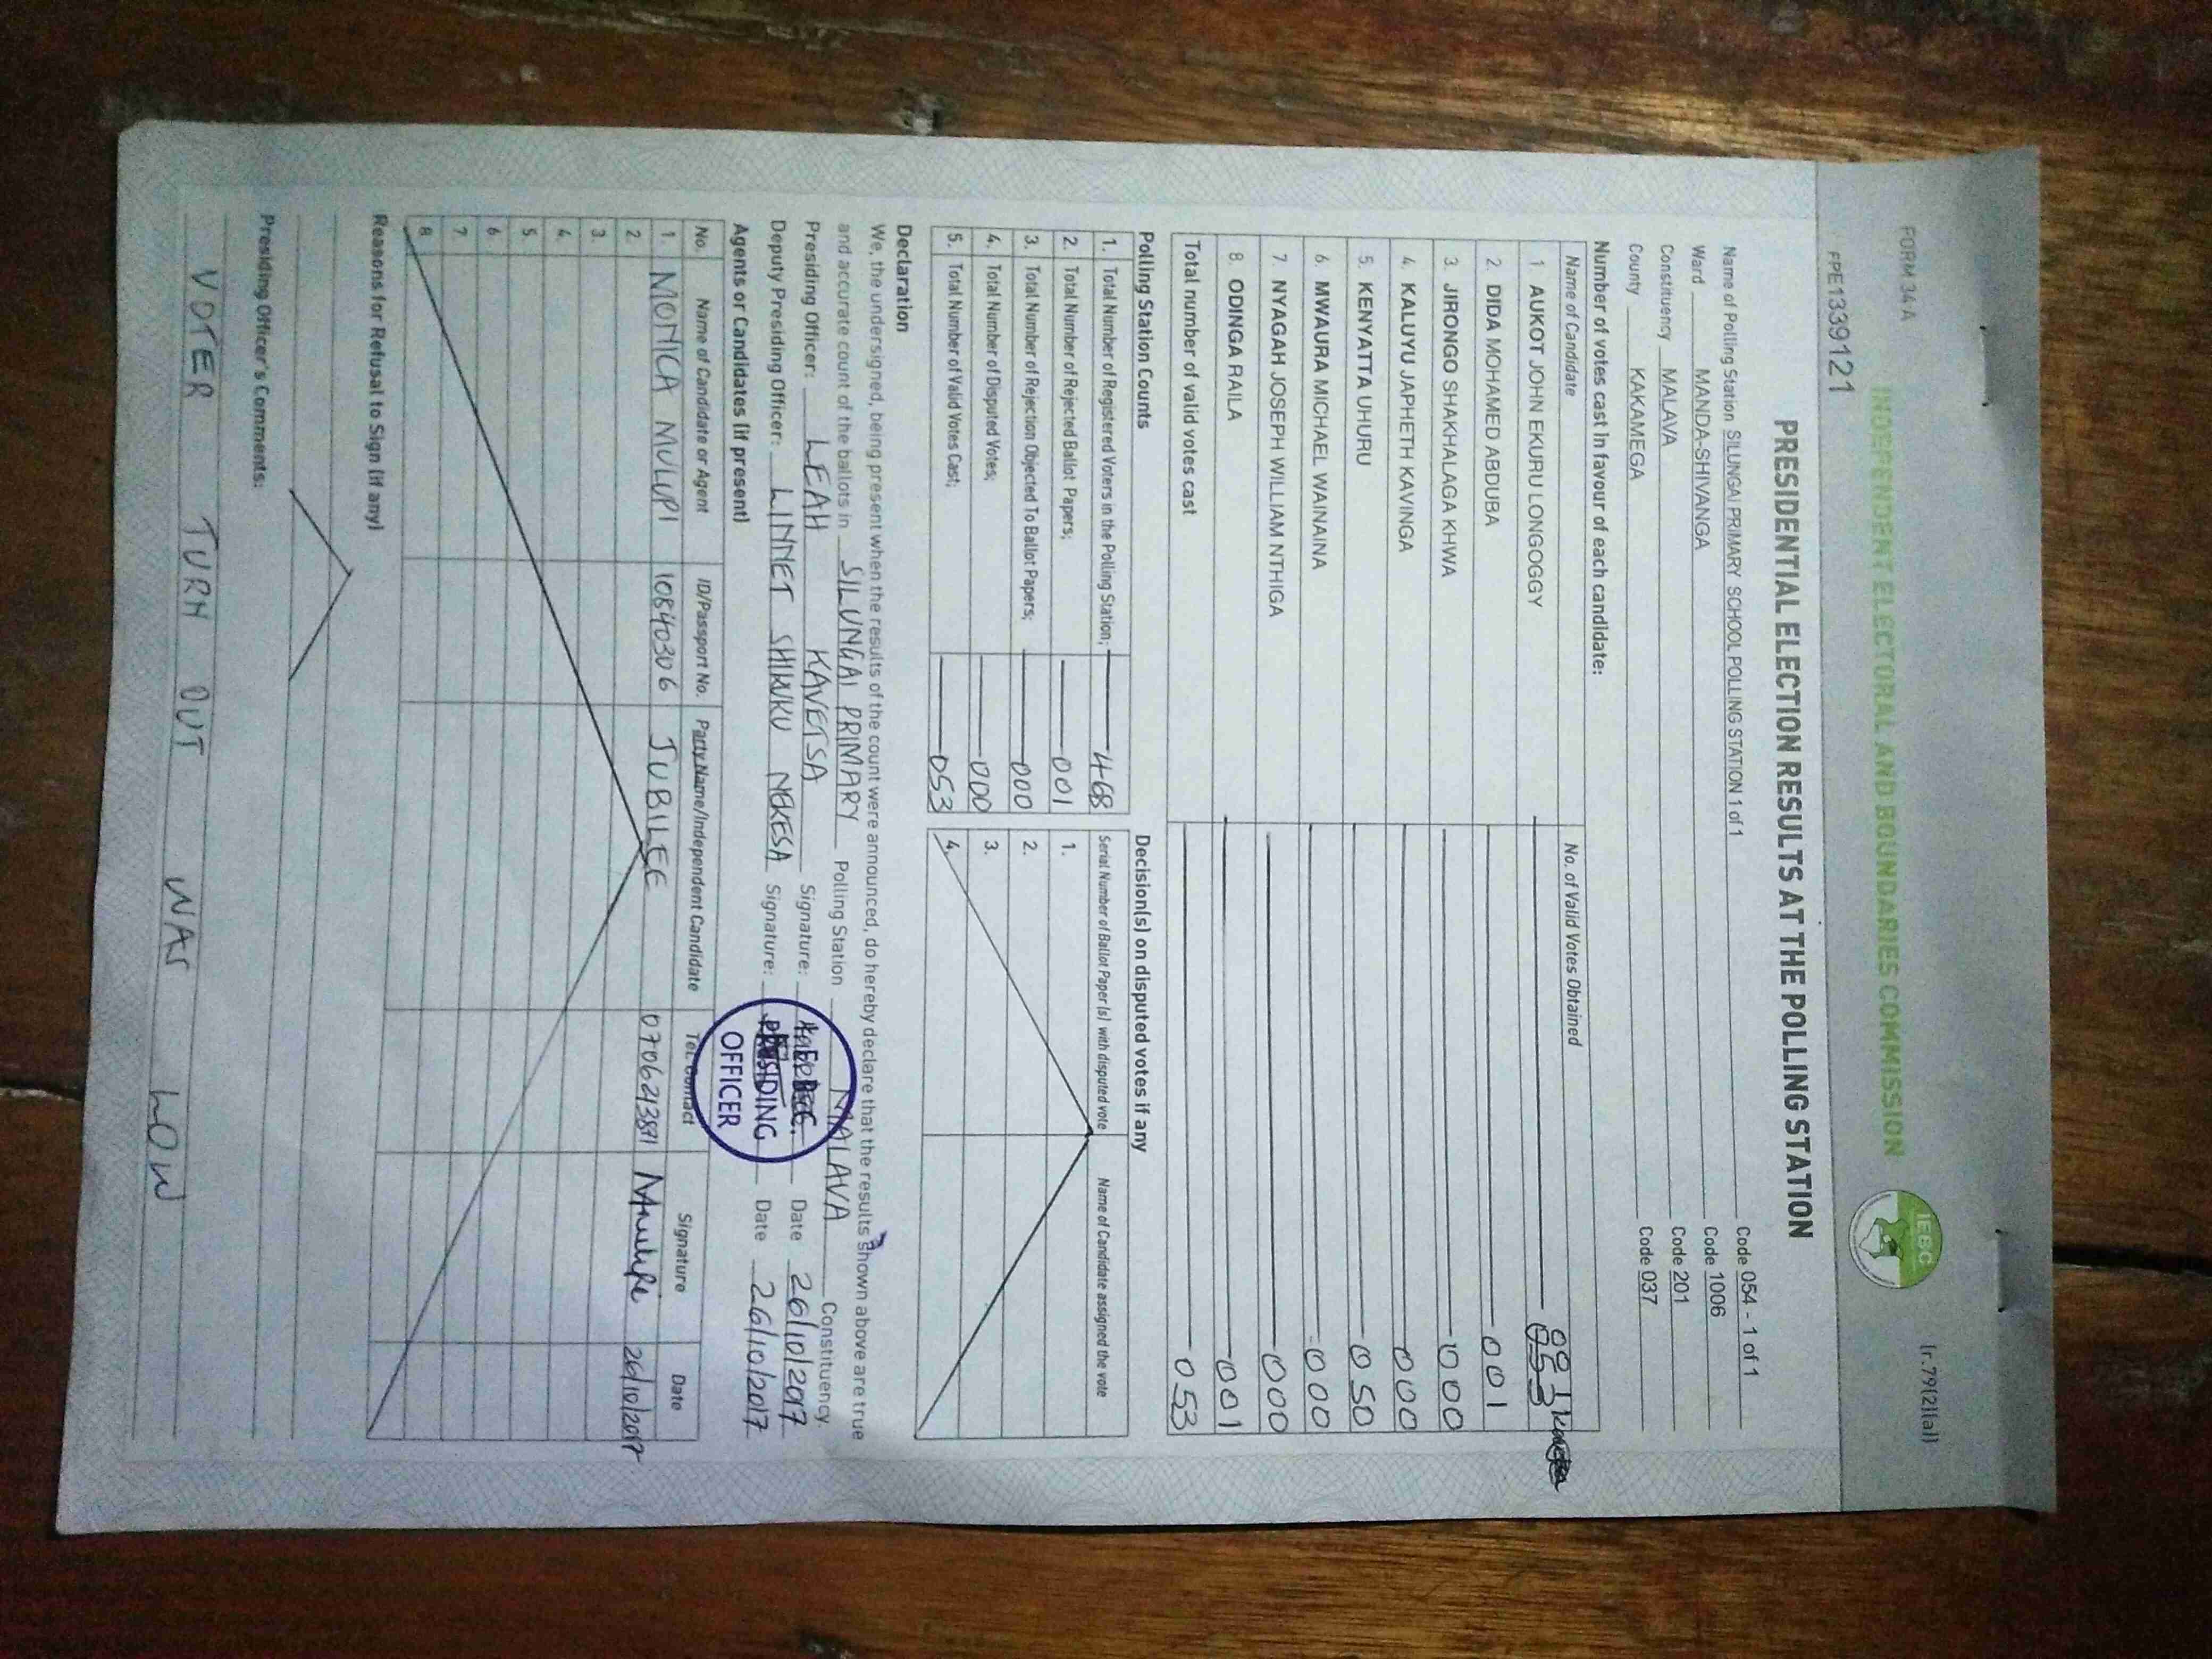 FORM 34A
(r.79(2)(a))
FPE1339121
INDEPENDENT ELECTORAL AND BOUNDARIES COMMISSION
IEBC
PRESIDENTIAL ELECTION RESULTS AT THE POLLING STATION
Name of Polling Station SILUNGAI PRIMARY SCHOOL POLLING STATION 1 of 1 Code 054 - 1 of 1
Ward MANDA-SHIVANGA Code 1006
Constituency MALAVA Code 201
County KAKAMEGA Code 037
Number of votes cast in favour of each candidate:
Name of Candidate No. of Valid Votes Obtained
1 AUKOT JOHN EKURU LONGOGGY 001
2. DIDA MOHAMED ABDUBA 001
3. JIRONGO SHAKHALAGA KHWA 000
4. KALUYU JAPHETH KAVINGA 000
5. KENYATTA UHURU 050
6. MWAURA MICHAEL WAINAINA 000
7 NYAGAH JOSEPH WILLIAM NTHIGA 000
8. ODINGA RAILA 001
Total number of valid votes cast 053
Polling Station Counts
1. Total Number of Registered Voters in the Polling Station; 468
2. Total Number of Rejected Ballot Papers; 001
3. Total Number of Rejection Objected To Ballot Papers; 000
4. Total Number of Disputed Votes; 000
5. Total Number of Valid Votes Cast; 053
Decision(s) on disputed votes if any
Serial Number of Ballot Paper(s) with disputed vote Name of Candidate assigned the vote
1.
2.
3.
4.
Declaration
We, the undersigned, being present when the results of the count were announced, do hereby declare that the results shown above are true
and accurate count of the ballots in SILUNGAI PRIMARY Polling Station MALAVA Constituency.
Presiding Officer: LEAH KAVETSA Signature: Date 26/10/2017
Deputy Presiding Officer: LINNET SHIKUKU NEKESA Signature: Date 26/10/2017
PRESIDING
OFFICER
Agents or Candidates (if present)
No. Name of Candidate or Agent ID/Passport No. Party Name/Independent Candidate Tel. Contact Signature Date
1. MONICA MULUPI 10840306 JUBILEE 0706213891 26/10/2017
2.
3.
4.
5.
6.
7.
8.
Reasons for Refusal to Sign (if any)
Presiding Officer's Comments:
VOTER TURN OUT WAS LOW